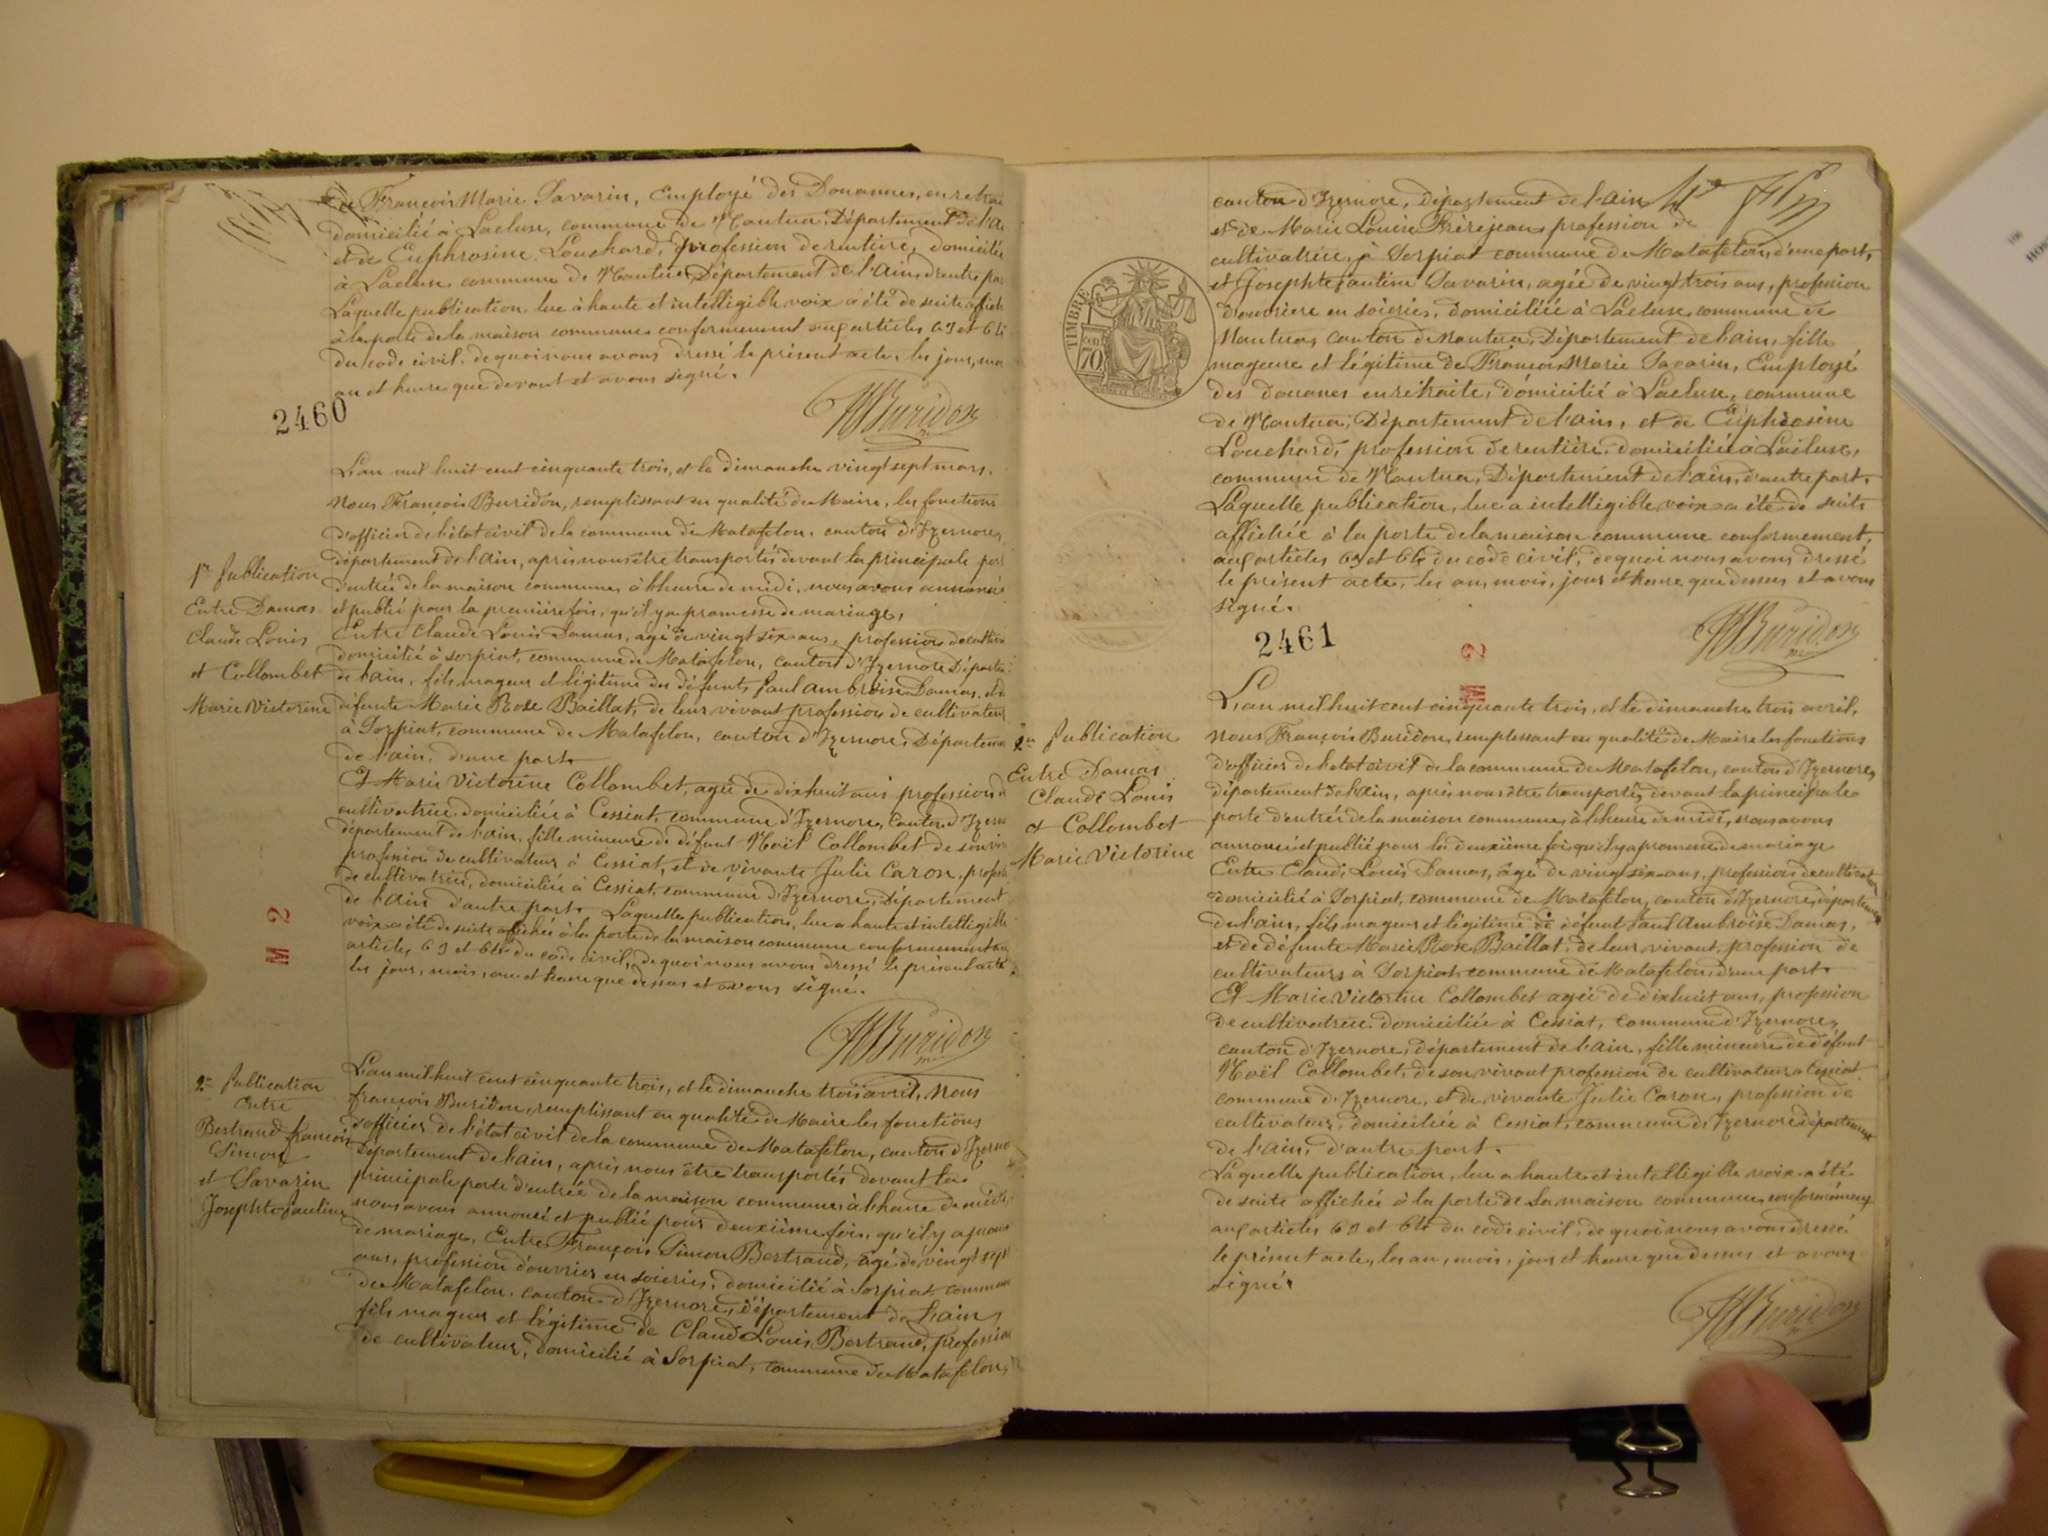 de François Marie Savarin, Employé des Douannes, en retrai
domicilié à Lacluse, commune de Nantua, Département de l'ai
et de Euphrosine Louchard, profession de rentière, domiciliée
à Lacluse commune de Nantua Département de l'ain, d'autre par
Laquelle publication, lue à haute et intelligible voix a été de suite affich
à la porte de la maison commune conformement aux articles 63 et 64
du code civil. de quoi nous avons dressé le présent acte, les jour, mo
an et heure que devant et avons signé.
Buridon
2460
L'an mil huit cent cinquante trois, et le dimanche vingt sept mars,
nous François Buridon, remplissant en qualité de Maire, les fonctions
d'officier de l'état civil de la commune de Matafelon, canton d'Izernore,
département de l'ain, après nous être transportés devant la principale port
d'entrée de la maison commune, à l'heure de midi, nous avons annoncé
et publié pour la première fois, qu'il y a promesse de mariage,
1re Publication
Entre Damas
Claude Louis
et Collombet
Marie Victorine
Entre Claude Louis Damas, agé de vingt six ans, profession de cultiva
domicilié à sorpiat, commune de Matafelon, canton d'Izernore Départe
de l'ain, fils majeur et légitime des défunts Paul ambroise Damas, et d
défunte Marie Rose Baillat, de leur vivant profession de cultivateur
à Sorpiat, commune de Matafelon, canton d'Izernore, Départemen
de l'ain, d'une part.
Et Marie Victorine Collombet, agée de dix huit ans profession d
cultivatrice domiciliée à Cessiat, commune d'Izernore, canton d'Izern
département de l'ain, fille mineure de défunt Noël Collombet de son viv
profession de cultivateur à Cessiat, et de vivante Julie Caron, profess
de cultivatrice, domiciliée à Cessiat, commune d'Izernore, Département
de l'ain d'autre part. Laquelle publication, lue a haute et intelligible
voix a été de suite affichée à la porte de la maison commune conformement au
articles 63 et 64 du code civil, de quoi nous avons dressé le présent acte
les jour, mois, an et heure que dessus et avons signé.
M 2
Buridon
2me Publication
Entre
Bertrand françois
Simon
et Savarin
Josephte Pauline
L'an mil huit cent cinquante trois, et le dimanche trois avril, Nous
françois Buridon, remplissant en qualité de Maire les fonctions
d'officier de l'état civil de la commune de Matafelon, canton d'Izerno
Département de l'ain, après nous être transportés devant la
principale porte d'entrée de la maison commune, à l'heure de midi,
nous avons annoncé et publié pour deuxième fois, qu'il y a prom
de mariage, Entre François Simon Bertrand, agé de vingt sept
ans, profession d'ouvrier en soieries, domicilié à Sorpiat commun
de Matafelon, canton d'Izernore, département de l'ain,
fils majeur et légitime de Claude Louis Bertrand, profession
de cultivateur, domicilié à Sorpiat, commune de Matafelon,
canton d'Izernore, département de l'ain
et de Marie Louise Frèrejean, profession de
cultivatrice, à Sorpiat commune de Matafelon, d'une part,
et Josephte Pautine Savarin, agée de vingt trois ans, profession
d'ouvriere en soieries, domiciliée à Lacluse, commune de
Nantua, canton de Nantua, Département de l'ain, fille
majeure et légitime de François Marie Savarin, Employé
des douanes en retraite, domicilié à Lacluse, commune
de Nantua, Département de l'ain, et de Euphrosine
Louchard, profession de rentière, domiciliée à Lacluse,
commune de Nantua, Département de l'ain, d'autre part.
Laquelle publication, lue a intelligible voix a été de suite
affichée à la porte de la maison commune conformement,
aux articles 63 et 64 du code civil, de quoi nous avons dressé
le présent acte, les an, mois, jour et heure que dessus et avons
signé.
TIMBRE
70
Buridon
2461
M 2
L'an mil huit cent cinquante trois, et le dimanche trois avril,
nous François Buridon, remplissant en qualité de Maire les fonctions
d'officier de l'etat civil de la commune de Matafelon, canton d'Izernore,
département de l'ain, après nous être transportés, devant la principale
porte d'entrée de la maison commune, à l'heure de midi, nous avons
annoncé et publié pour la deuxième fois qu'il y a promesse de mariage
2me Publication
Entre Damas
Claude Louis
et Collombet
Marie Victorine
Entre Claude Louis Damas, agé de vingt six ans, profession de cultivateur
domicilié à Sorpiat, commune de Matafelon, canton d'Izernore, département
de l'ain, fils majeur et légitime de défunt Paul Ambroise Damas,
et de défunte Marie Rose Baillat, de leur vivant, profession de
cultivateurs à Sorpiat commune de Matafelon, d'une part.
Et Marie Victorine Collombet agée de dix huit ans, profession
de cultivatrice, domiciliée à Cessiat, commune d'Izernore,
canton d'Izernore, département de l'ain, fille mineure de défunt
Noël Collombet, de son vivant profession de cultivateur a Cessiat
commune d'Izernore, et de vivante Julie Caron, profession de
cultivateur, domiciliée à Cessiat, commune d'Izernore département
de l'ain, d'autre part.
Laquelle publication, lue a haute et intelligible voix a été
de suite affichée à la porte de la maison commune, conformément
aux articles 63 et 64 du code civil, de quoi nous avons dressé
le présent acte, les an, mois, jour et heure que dessus et avons
signé.
Buridon